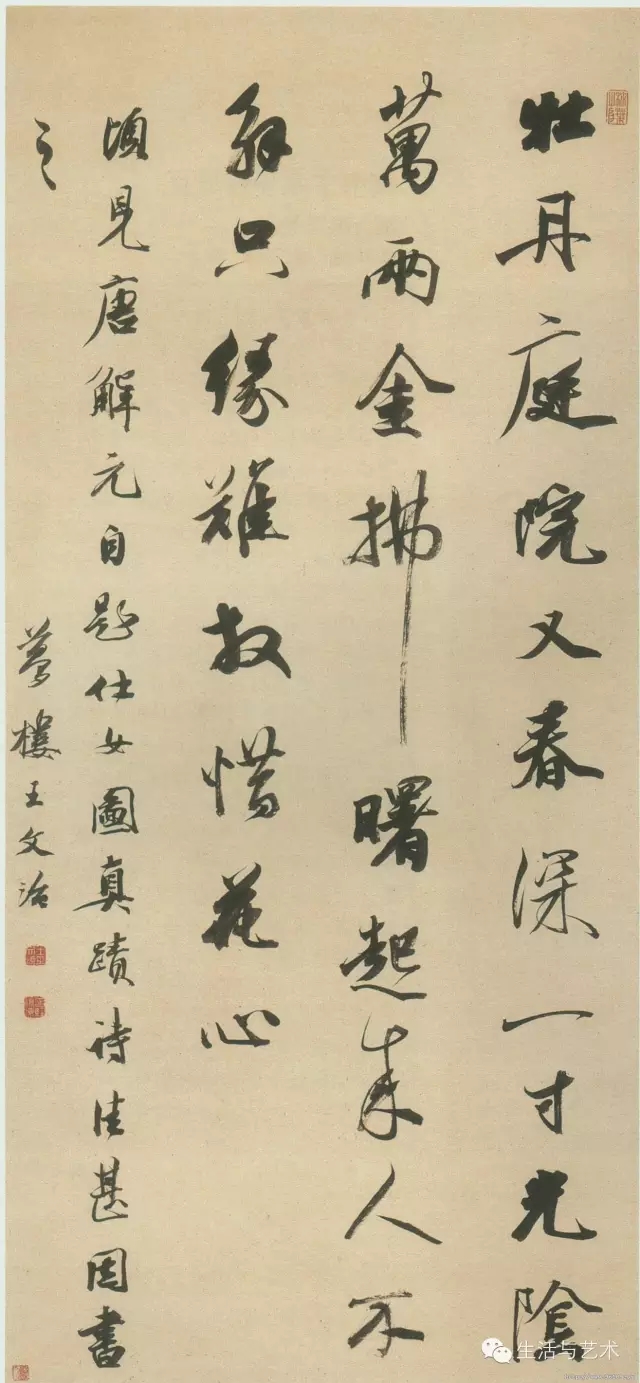 牡丹庭院又春深一寸光陰
萬兩金拂曙起來人不
解只緣難放惜花心
頃見唐解元自題仕女圖真蹟詩佳甚因書
之
夢樓王文治
生活与艺术